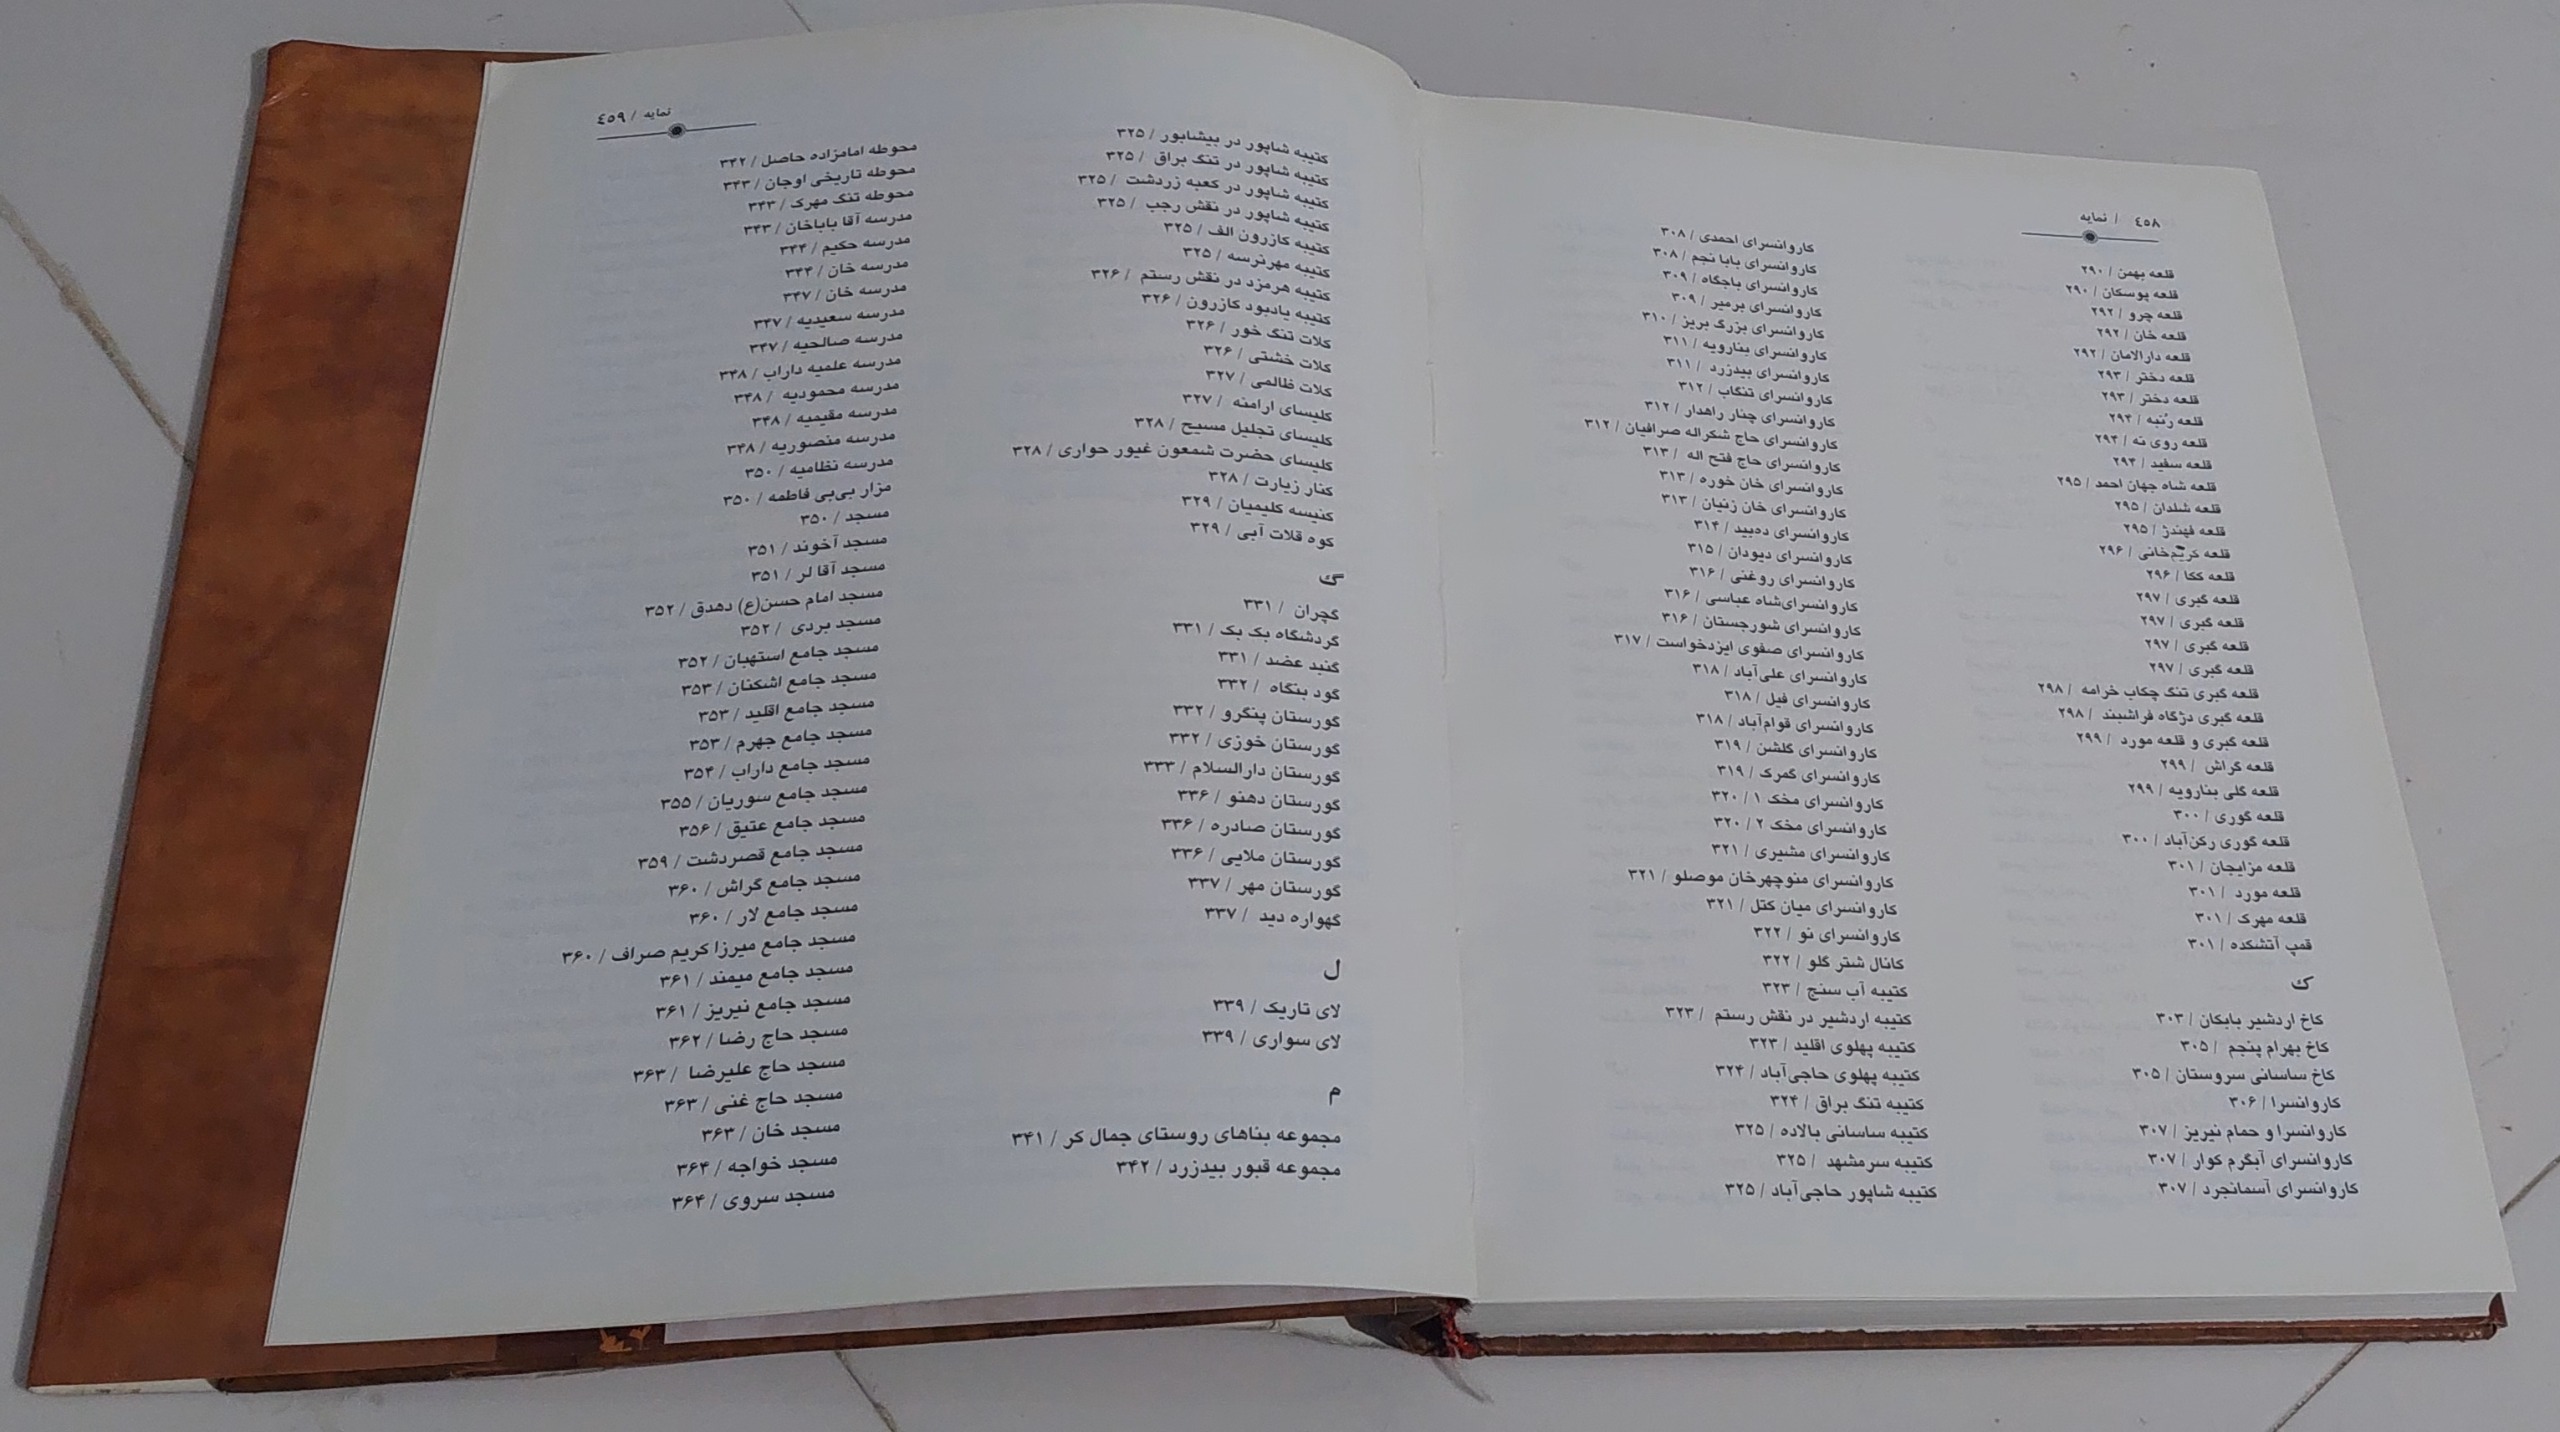 ٤٥٨ / نمایه
قلعه بهمن / ۲۹۰
قلعه پوسکان / ۲۹۰
قلعه چرو / ۲۹۲
قلعه خان / ۲۹۲
قلعه دارالامان / ۲۹۲
قلعه دختر / ۲۹۳
قلعه دختر / ۲۹۳
قلعه رُنبه / ۲۹۴
قلعه روی نه / ۲۹۴
قلعه سفید / ۲۹۴
قلعه شاه جهان احمد / ۲۹۵
قلعه شلدان / ۲۹۵
قلعه فهندژ / ۲۹۵
قلعه کریم‌خانی / ۲۹۶
قلعه ککا / ۲۹۶
قلعه گبری / ۲۹۷
قلعه گبری / ۲۹۷
قلعه گبری / ۲۹۷
قلعه گبری / ۲۹۷
قلعه گبری تنگ چکاب خرامه / ۲۹۸
قلعه گبری دژگاه فراشبند / ۲۹۸
قلعه گبری و قلعه مورد / ۲۹۹
قلعه گراش / ۲۹۹
قلعه گلی بنارویه / ۲۹۹
قلعه گوری / ۳۰۰
قلعه گوری رکن‌آباد / ۳۰۰
قلعه مزایجان / ۳۰۱
قلعه مورد / ۳۰۱
قلعه مهرک / ۳۰۱
قمپ آتشکده / ۳۰۱
ک
کاخ اردشیر بابکان / ۳۰۳
کاخ بهرام پنجم / ۳۰۵
کاخ ساسانی سروستان / ۳۰۵
کاروانسرا / ۳۰۶
کاروانسرا و حمام نیریز / ۳۰۷
کاروانسرای آبگرم کوار / ۳۰۷
کاروانسرای آسمانجرد / ۳۰۷
کاروانسرای احمدی / ۳۰۸
کاروانسرای بابا نجم / ۳۰۸
کاروانسرای باجگاه / ۳۰۹
کاروانسرای برمیر / ۳۰۹
کاروانسرای بزرگ بریز / ۳۱۰
کاروانسرای بنارویه / ۳۱۱
کاروانسرای بیدزرد / ۳۱۱
کاروانسرای تنگاب / ۳۱۲
کاروانسرای چنار راهدار / ۳۱۲
کاروانسرای حاج شکراله صرافیان / ۳۱۲
کاروانسرای حاج فتح اله / ۳۱۳
کاروانسرای خان خوره / ۳۱۳
کاروانسرای خان زنیان / ۳۱۳
کاروانسرای ده‌بید / ۳۱۴
کاروانسرای دیودان / ۳۱۵
کاروانسرای روغنی / ۳۱۶
کاروانسرای‌شاه عباسی / ۳۱۶
کاروانسرای شورجستان / ۳۱۶
کاروانسرای صفوی ایزدخواست / ۳۱۷
کاروانسرای علی‌آباد / ۳۱۸
کاروانسرای فیل / ۳۱۸
کاروانسرای قوام‌آباد / ۳۱۸
کاروانسرای گلشن / ۳۱۹
کاروانسرای گمرک / ۳۱۹
کاروانسرای مخک ۱ / ۳۲۰
کاروانسرای مخک ۲ / ۳۲۰
کاروانسرای مشیری / ۳۲۱
کاروانسرای منوچهرخان موصلو / ۳۲۱
کاروانسرای میان کتل / ۳۲۱
کاروانسرای نو / ۳۲۲
کانال شتر گلو / ۳۲۲
کتیبه آب سنج / ۳۲۳
کتیبه اردشیر در نقش رستم / ۳۲۳
کتیبه پهلوی اقلید / ۳۲۳
کتیبه پهلوی حاجی‌آباد / ۳۲۴
کتیبه تنگ براق / ۳۲۴
کتیبه ساسانی بالاده / ۳۲۵
کتیبه سرمشهد / ۳۲۵
کتیبه شاپور حاجی‌آباد / ۳۲۵
نمایه / ٤٥٩
کتیبه شاپور در بیشابور / ۳۲۵
کتیبه شاپور در تنگ براق / ۳۲۵
کتیبه شاپور در کعبه زردشت / ۳۲۵
کتیبه شاپور در نقش رجب / ۳۲۵
کتیبه کازرون الف / ۳۲۵
کتیبه مهرنرسه / ۳۲۵
کتیبه هرمزد در نقش رستم / ۳۲۶
کتیبه یادبود کازرون / ۳۲۶
کلات تنگ خور / ۳۲۶
کلات خشتی / ۳۲۶
کلات ظالمی / ۳۲۷
کلیسای ارامنه / ۳۲۷
کلیسای تجلیل مسیح / ۳۲۸
کلیسای حضرت شمعون غیور حواری / ۳۲۸
کنار زیارت / ۳۲۸
کنیسه کلیمیان / ۳۲۹
کوه قلات آبی / ۳۲۹
گ
گچران / ۳۳۱
گردشگاه بک بک / ۳۳۱
گنبد عضد / ۳۳۱
گود بنگاه / ۳۳۲
گورستان پنگرو / ۳۳۲
گورستان خوزی / ۳۳۲
گورستان دارالسلام / ۳۳۳
گورستان دهنو / ۳۳۶
گورستان صادره / ۳۳۶
گورستان ملایی / ۳۳۶
گورستان مهر / ۳۳۷
گهواره دید / ۳۳۷
ل
لای تاریک / ۳۳۹
لای سواری / ۳۳۹
م
مجموعه بناهای روستای جمال کر / ۳۴۱
مجموعه قبور بیدزرد / ۳۴۲
محوطه امامزاده حاصل / ۳۴۲
محوطه تاریخی اوجان / ۳۴۳
محوطه تنگ مهرک / ۳۴۳
مدرسه آقا باباخان / ۳۴۳
مدرسه حکیم / ۳۴۴
مدرسه خان / ۳۴۴
مدرسه خان / ۳۴۷
مدرسه سعیدیه / ۳۴۷
مدرسه صالحیه / ۳۴۷
مدرسه علمیه داراب / ۳۴۸
مدرسه محمودیه / ۳۴۸
مدرسه مقیمیه / ۳۴۸
مدرسه منصوریه / ۳۴۸
مدرسه نظامیه / ۳۵۰
مزار بی‌بی فاطمه / ۳۵۰
مسجد / ۳۵۰
مسجد آخوند / ۳۵۱
مسجد آقا لر / ۳۵۱
مسجد امام حسن(ع) دهدق / ۳۵۲
مسجد بردی / ۳۵۲
مسجد جامع استهبان / ۳۵۲
مسجد جامع اشکنان / ۳۵۳
مسجد جامع اقلید / ۳۵۳
مسجد جامع جهرم / ۳۵۳
مسجد جامع داراب / ۳۵۴
مسجد جامع سوریان / ۳۵۵
مسجد جامع عتیق / ۳۵۶
مسجد جامع قصردشت / ۳۵۹
مسجد جامع گراش / ۳۶۰
مسجد جامع لار / ۳۶۰
مسجد جامع میرزا کریم صراف / ۳۶۰
مسجد جامع میمند / ۳۶۱
مسجد جامع نیریز / ۳۶۱
مسجد حاج رضا / ۳۶۲
مسجد حاج علیرضا / ۳۶۳
مسجد حاج غنی / ۳۶۳
مسجد خان / ۳۶۳
مسجد خواجه / ۳۶۴
مسجد سروی / ۳۶۴